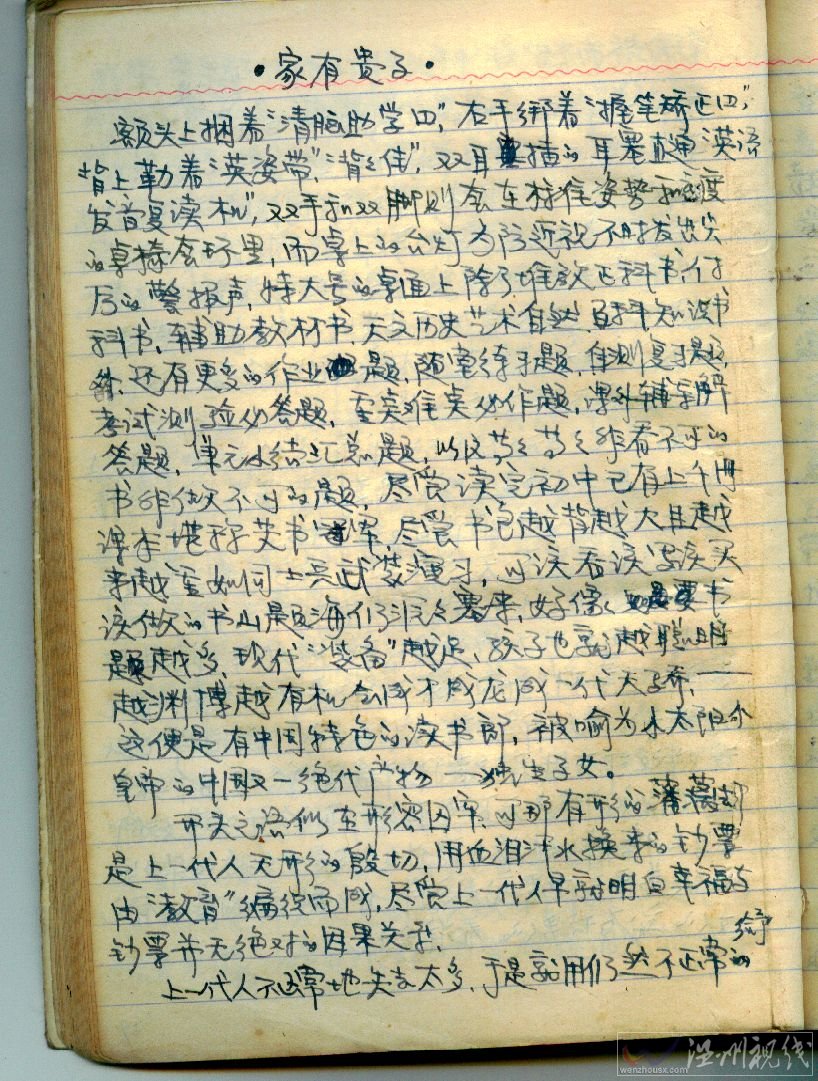 ·家有贵子·
额头上捆着“清脑助学口”,右手绑着“握笔矫正口”,
背上勒着“英姿带”“背背佳”,双耳插的耳塞直通“英语
发音复读机”,双手和双脚则套在标准姿势和角度
的桌椅套环里,而桌上的台灯为防近视不时发出尖
厉的警报声,特大号的桌面上除了堆放正科书付
科书,辅助教材书,天文历史艺术自然百科知识书
外,还有更多的作业题,随堂练习题,自测复习题,
考试测验必答题,重点难点必作题,课外辅导解
答题,单元小结汇总题,以及等等等等非看不可的
书非做不可的题,尽管读完初中已有上千册
课本堪称芝书,尽管书包越背越大且越
来越重如同士兵武装演习,可该看该写该买
该做的书山题海仍滚滚袭来,好像只要书
题越多,现代“装备”越足,孩子也就越聪明
越渊博越有机会成才成龙成一代天骄,——
这便是有中国特色的读书郎,被喻为小太阳小
皇帝的中国又一绝代产物——独生子女。
开头之语似在形容囚牢,可那有形的藩篱却
是上一代人无形的殷切,用血泪汗水换来的钞票
由“教育”编织而成,尽管上一代人早就明白幸福与
钞票并无绝对的因果关系,
上一代人不正常地失去太多,于是就用仍然不正常的
给予
温州视线
wenzhousx.com